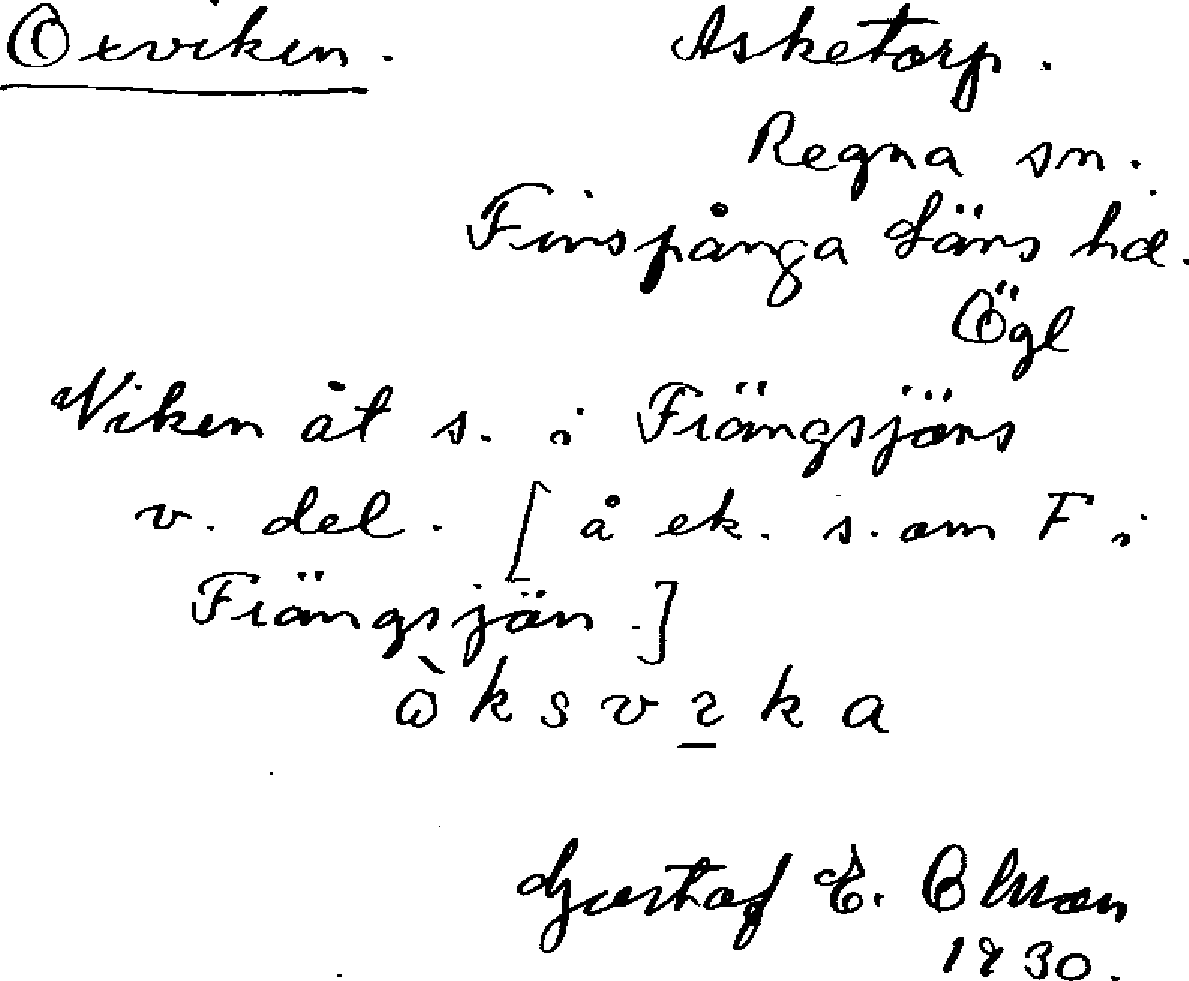 Oxviken. Asketorp.
Regna sn.
Finspånga läns hd.
Ögl
Viken åt s. i Fiängsjöns
v. del. [å ek. s. om F i
Fiängsjön.]
ò k s v ɩ k a
Gustaf E. Olsson
1930.